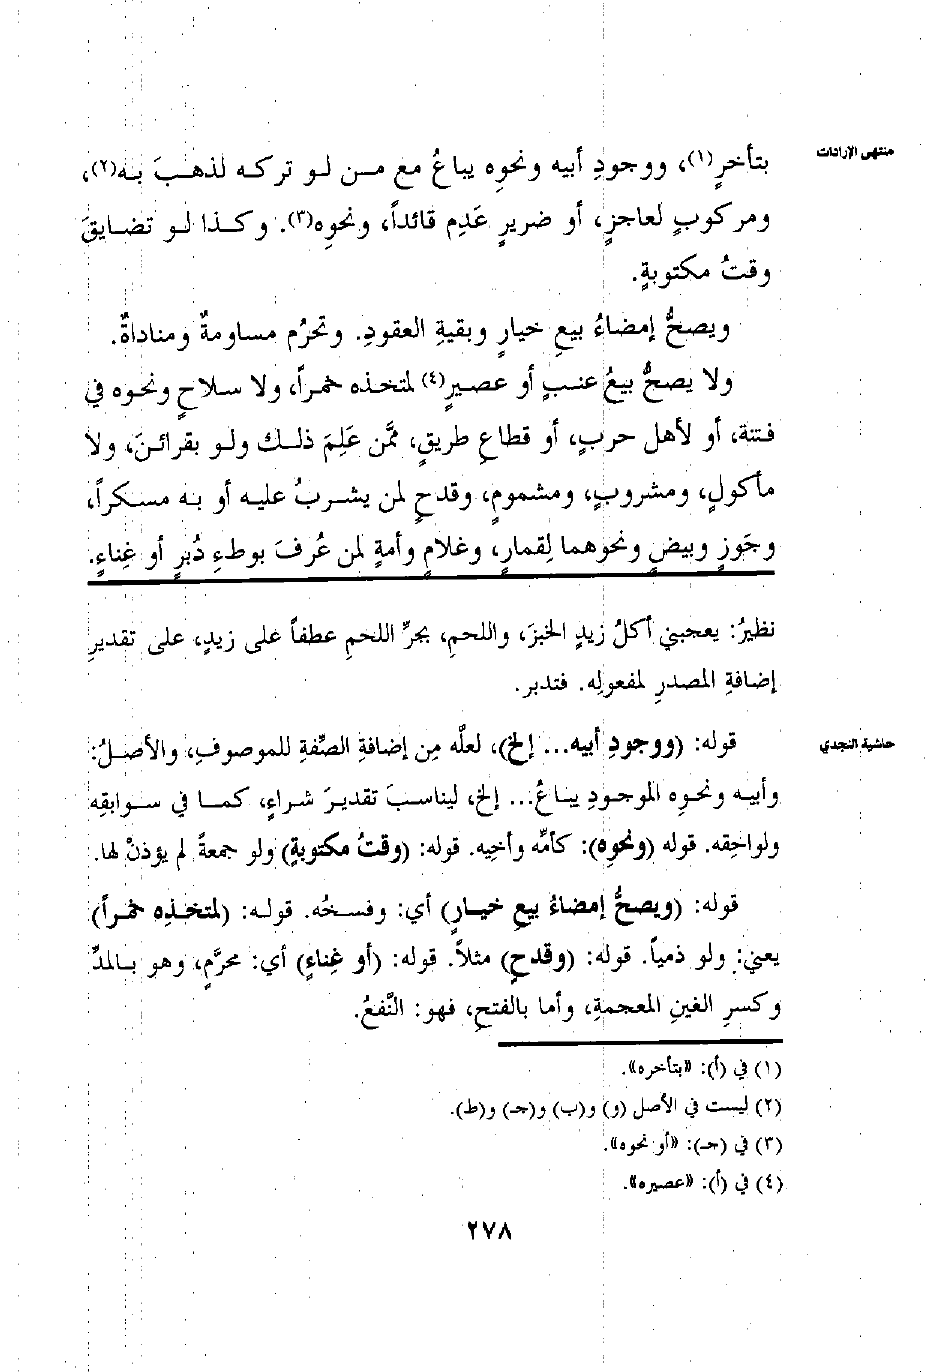 منتهى الإرادات
بتأخرٍ(١)، ووجودِ أبيه ونحوِه يباعُ مع مـن لـو تركـه لذهـبَ بـه(٢)،
ومركوبٍ لعاجزٍ، أو ضريرٍ عَدِم قائداً، ونحوِه(٣). وكـذا لـو تضـايقَ
وقتُ مكتوبةٍ.
ويصحُّ إمضاءُ بيعِ خيارٍ وبقيةِ العقودِ. وتحرُم مساومةٌ ومناداةٌ.
ولا يصحُّ بيعُ عنـبٍ أو عصيرٍ(٤) لمتخـذه خمـراً، ولا سـلاحٍ ونحـوه في
فتنة، أو لأهل حربٍ، أو قطاعِ طريقٍ، ممَّن عَلِمَ ذلـك ولـو بقرائـنَ، ولا
مأكولٍ، ومشروبٍ، ومشمومٍ، وقدحٍ لمن يشـربُ عليـه أو بـه مسـكراً،
وجَوزٍ وبيضٍ ونحوهما لِقمارٍ، وغلامٍ وأمةٍ لمن عُرفَ بوطءِ دُبرٍ أو غِناءٍ.
نظيرُ: يعجبني أكلُ زيدٍ الخبزَ، واللحمِ، بجرِّ اللحمِ عطفاً على زيدٍ، على تقديرِ
إضافةِ المصدرِ لمفعولِه. فتدبر.
حاشية النجدي
قوله: (ووجودِ أبيه... إلخ)، لعلَّه مِن إضافةِ الصِّفةِ للموصوفِ، والأصـلُ:
وأبيـه ونحـوِه الموجـودِ يبـاعُ... إلخ، ليناسـبَ تقديـرَ شراءٍ، كمـا في سـوابقِه
ولواحِقه. قوله (ونحوِه): كأمِّه وأخيه. قوله: (وقتُ مكتوبةٍ) ولو جمعةً لم يؤذنْ لها.
قوله: (ويصحُّ إمضاءُ بيعِ خيـارٍ) أي: وفسـخُه. قولـه: (لمتخـذِه خمـراً)
يعني: ولو ذمياً. قوله: (وقدحٍ) مثلاً. قوله: (أو غِناءٍ) أي: محرَّمٍ، وهو بـالمدِّ
وكسرِ الغينِ المعجمةِ، وأما بالفتحِ، فهو: النَّفعُ.
(١) في (أ): «بتأخره».
(٢) ليست في الأصل (و) و(ب) و(جـ) و(ط).
(٣) في (جـ): «أو نحوه».
(٤) في (أ): «عصيره».
٢٧٨